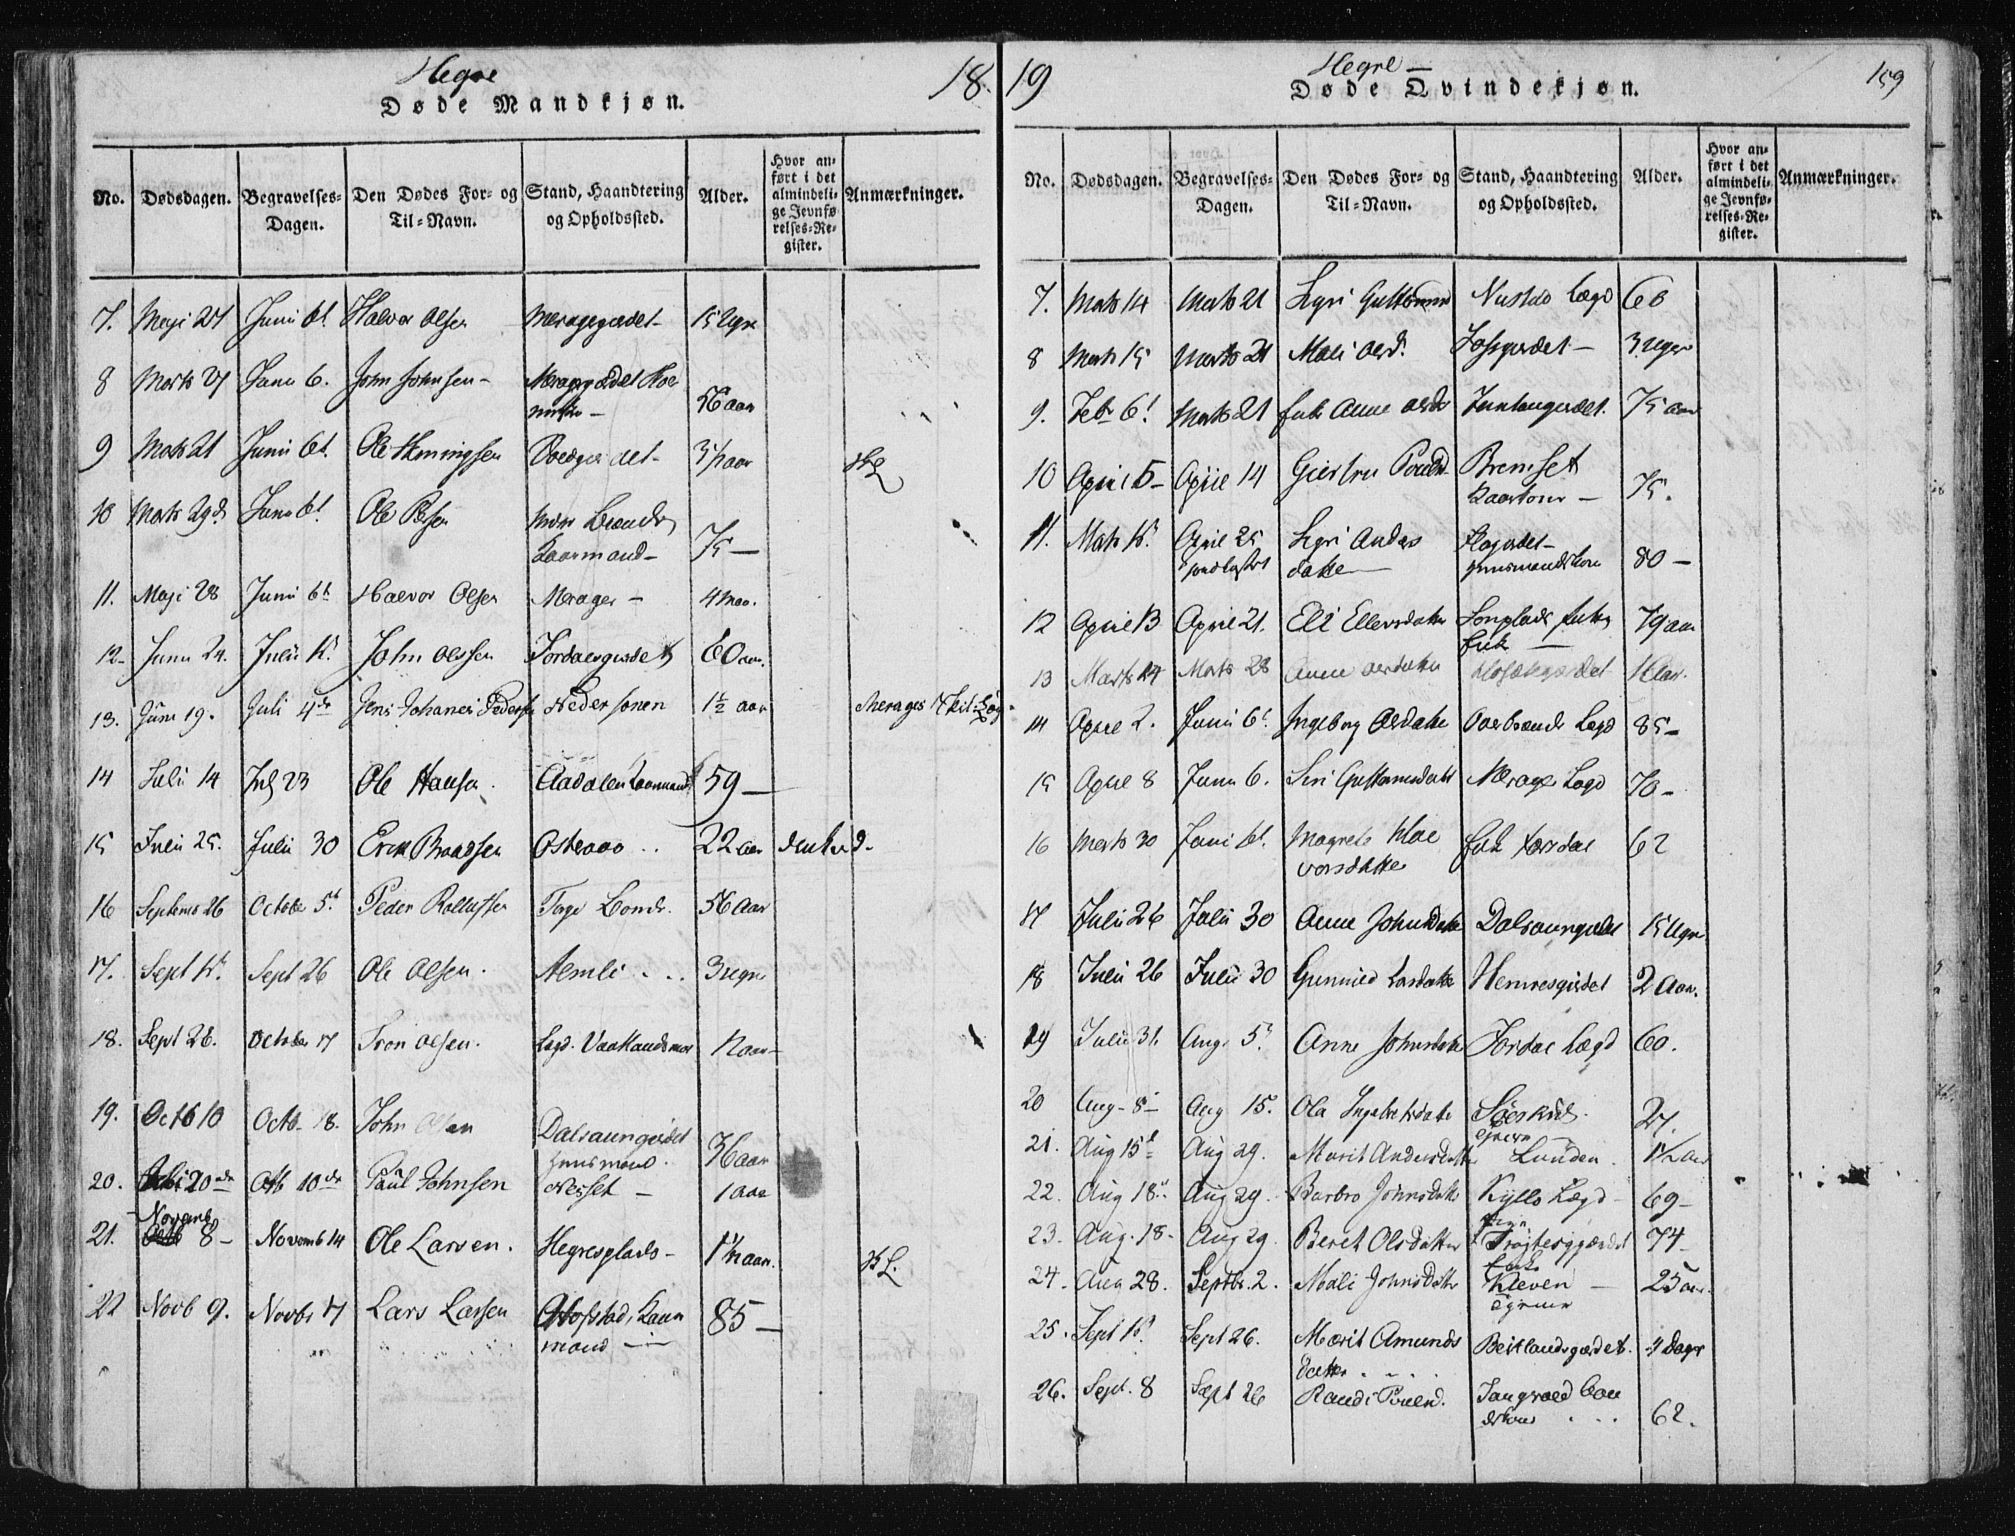 Hegre
Døde Mandkjøn.
18.
No. Dødsdagen. Begravelses-Dagen. Den Dødes For- og Til-Navn. Stand, Haandtering og Opholdssted. Alder. Hvor anført i det almindelige Jevnførelses-Register. Anmærkninger.
7. Maji 27 Junii 6t. Halvor Olsen Meragergærdet 15 Ugr
8 Marts 27 Junii 6. John Johnsen - 56 aar
9 Marts 21 Junii 6t. Ole Hemingsen 3½ aar
10 Marts 29de Junii 6t. Ole Olsen
Kaarmand - 75 -
11. Maji 28 Junii 6t Halvor Olsen Merager - 4 Maa.
12- Junii 24. Julii John Olssen Fordalsgierdet 60 aar.
13. Juni 19. Juli 4de Jens Johanes Pedersen Neder 1½ aar Merager
14 Julii 14 July 23 Ole Hansen Aadalen Kaarmand 59 -
15 Julii 25. Julii 30 Erik Braadsen Østeraas .. 22 aar druknd.
16 Septemb 26 October 5t Peder 56 Aar
17. Sept Sept 26 Ole Olsen. Almli . .. 3 ugr
18. Sept 26. October 17 Iron Olsen. Lægd. aar -
19. Octb 10 Octb. 18. John Olsen Dalsaungierdet
Huusmand. 36 aar
20. 20de Ottb 10de Paul Johnsen Nesset - 1 aar
Novemb
21. 8 - Novemb 14 Ole Larsen. Hegresplads - 1½ aar.
22 Novb 9. Novbr 17 Lars Larsen Hofstad, Kaar
mand - 85 -
19
Hegre -
Døde Qvindekjøn.
159
No. Dødsdagen. Begravelses-Dagen. Den Dødes For- og Til-Navn. Stand, Haandtering og Opholdssted. Alder. Hvor anført i det almindelige Jevnførelses-Register. Anmærkninger.
7. Marts 14 Marts 21 Sigri Guttormsd Lægd 66
8 Marts 15 Marts 21 Mali Olsd. 3 uger
9. Febr 6t Marts 21 Enke Anne Olsd 75 aar
10 April 5 - April 14 Giertru Poulsd Bremset
Kaarkone - 75.
11. Marts April 25 Sigri Anders
datter
Huusmandskone 80 -
12 April 13 April 21. Eli Ellevsdatter
Enk - 79 aar
13 Marts 14 Marts 28 Anne Olsdatter
14 April 2. Junii 6t Ingeborg Olsdatter Lægd 85 -
15 April 8 Junii 6. Siri Guttormsdatt Merager Lægd 70 -
16 Marts 30 Junii 6t. Magrete Hal
vorsdatter Enk 62
17 Julii 26 Julii 30 Anne Johnsdatter Dalsaungierdet 15 Ugr
18 Julii 26 Julii 30 Gunnild Larsdatter Hemresgierdet 2 Aar.
19 Julii 31. Aug. 5t Anne Johnsdatter Fordal Lægd 60.
20 Aug - 8 - Aug 15. Ola Ingebretsdatter 27.
21. Aug 15t Aug 29. Marit Andersdatter Lunden. 1½ aar
22. Aug 18. Aug 29. Barbro Johnsdatter Kyllo Lægd 69 -
23. Aug. 18. Aug 29. Beret Olsdatter 74
Enke
24. Aug 28. Septbr. 2. Mali Johnsdatter Kleven - 25 aar.
25. Sept Sept 26. Marit Amunds
datter . . . Beitlandsgærdet. 4 Dage
26. Sept. 8 Sept 26 Randi Poulsd. 62.